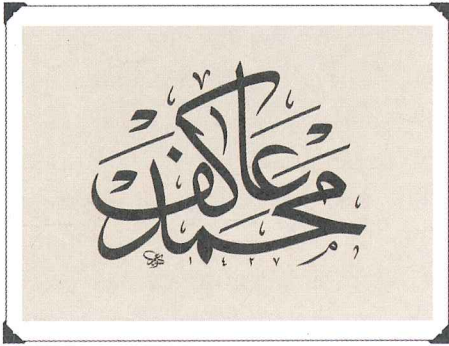 محمد عاكف
١٤٢٧